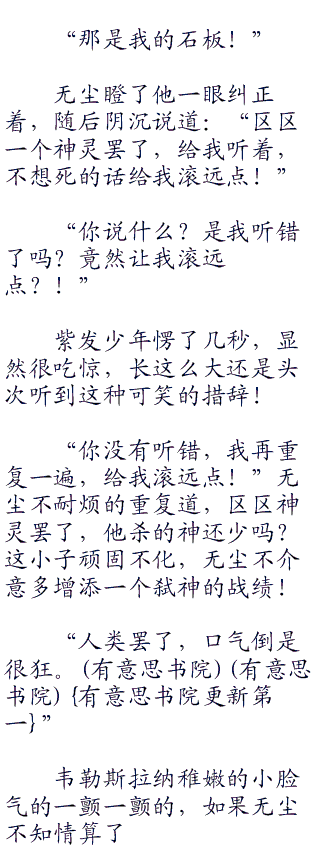 “那是我的石板！”
无尘瞪了他一眼纠正
着，随后阴沉说道：“区区
一个神灵罢了，给我听着，
不想死的话给我滚远点！”
“你说什么？是我听错
了吗？竟然让我滚远
点？！”
紫发少年愣了几秒，显
然很吃惊，长这么大还是头
次听到这种可笑的措辞！
“你没有听错，我再重
复一遍，给我滚远点！”无
尘不耐烦的重复道，区区神
灵罢了，他杀的神还少吗？
这小子顽固不化，无尘不介
意多增添一个弑神的战绩！
“人类罢了，口气倒是
很狂。(有意思书院) (有意思
书院) {有意思书院更新第
一}”
韦勒斯拉纳稚嫩的小脸
气的一颤一颤的，如果无尘
不知情算了